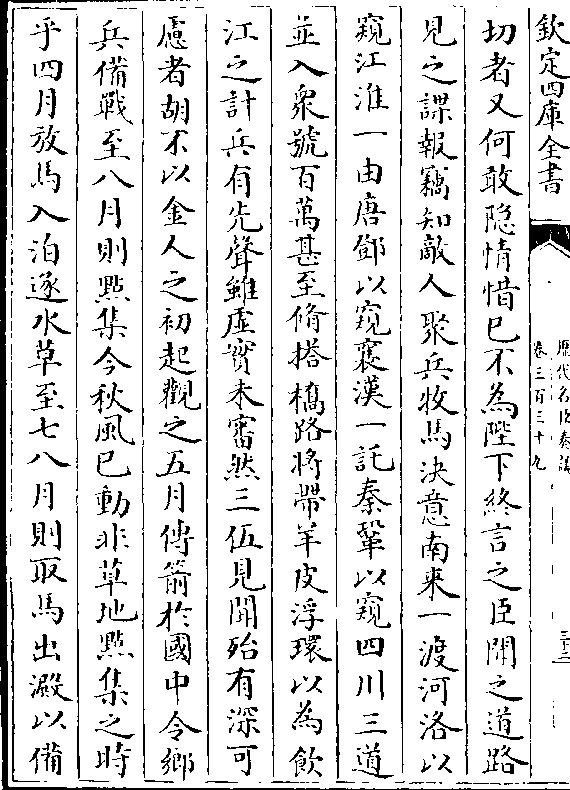 欽定四庫全書
歷代名臣奏議
卷三百三十九
三十二
切者又何敢隐情惜已不為陛下終言之臣聞之道路
見之諜報竊知敵人聚兵牧馬決意南來一渡河洛以
窺江淮一由唐鄧以窺襄漢一託秦鞏以窺四川三道
並入衆號百萬甚至脩搭橋路將帶羊皮浮環以為飲
江之計兵有先聲雖虛實未審然三伍見聞殆有深可
慮者胡不以金人之初起觀之五月傳箭於國中令鄉
兵備戰至八月則點集今秋風已動非草地點集之時
乎四月放馬入泊逐水草至七八月則取馬出澱以備